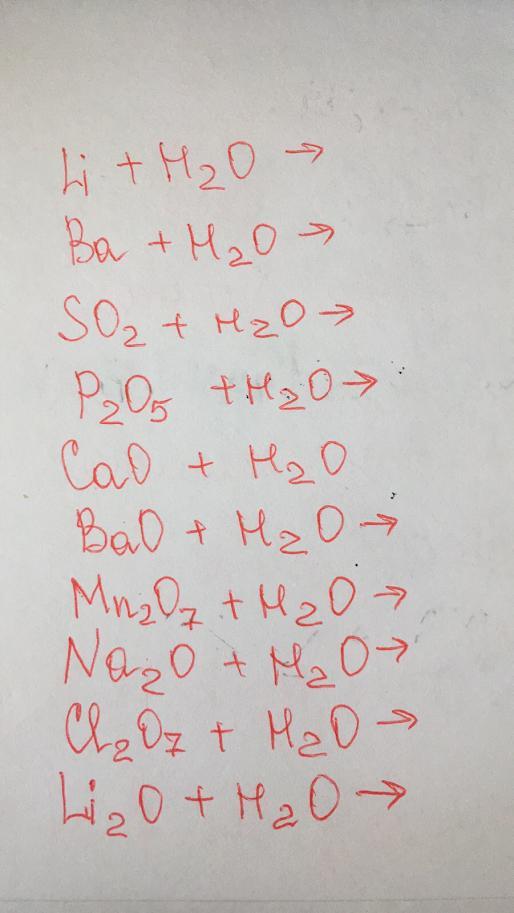 Li + H₂O →
Ba + H₂O →
SO₂ + H₂O →
P₂O₅ + H₂O →
CaO + H₂O
BaO + H₂O →
Mn₂O₇ + H₂O →
Na₂O + H₂O →
Cl₂O₇ + H₂O →
Li₂O + H₂O →